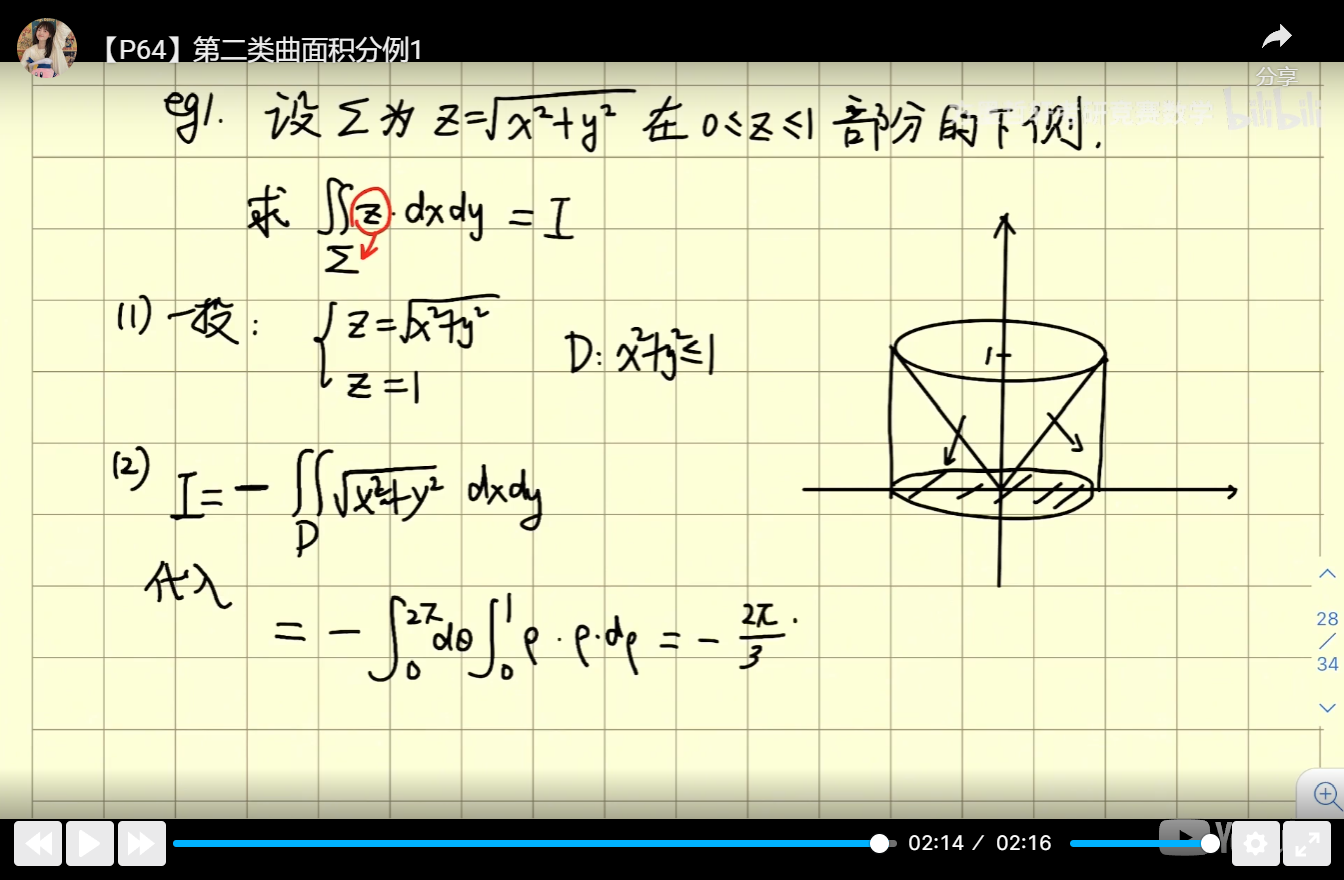 【P64】第二类曲面积分例1
分享
bilibili
eg1. 设 Σ 为 z=√(x²+y²) 在 0≤z≤1 部分的下侧.
求 ∬_Σ z·dxdy = I
(1) 一投: { z=√(x²+y²) z=1 D: x²+y²≤1
1
(2) I = - ∬_D √(x²+y²) dxdy
代入
= - ∫₀^2π dθ ∫₀^1 ρ·ρ·dρ = - 2π/3.
28
/
34
02:14 / 02:16